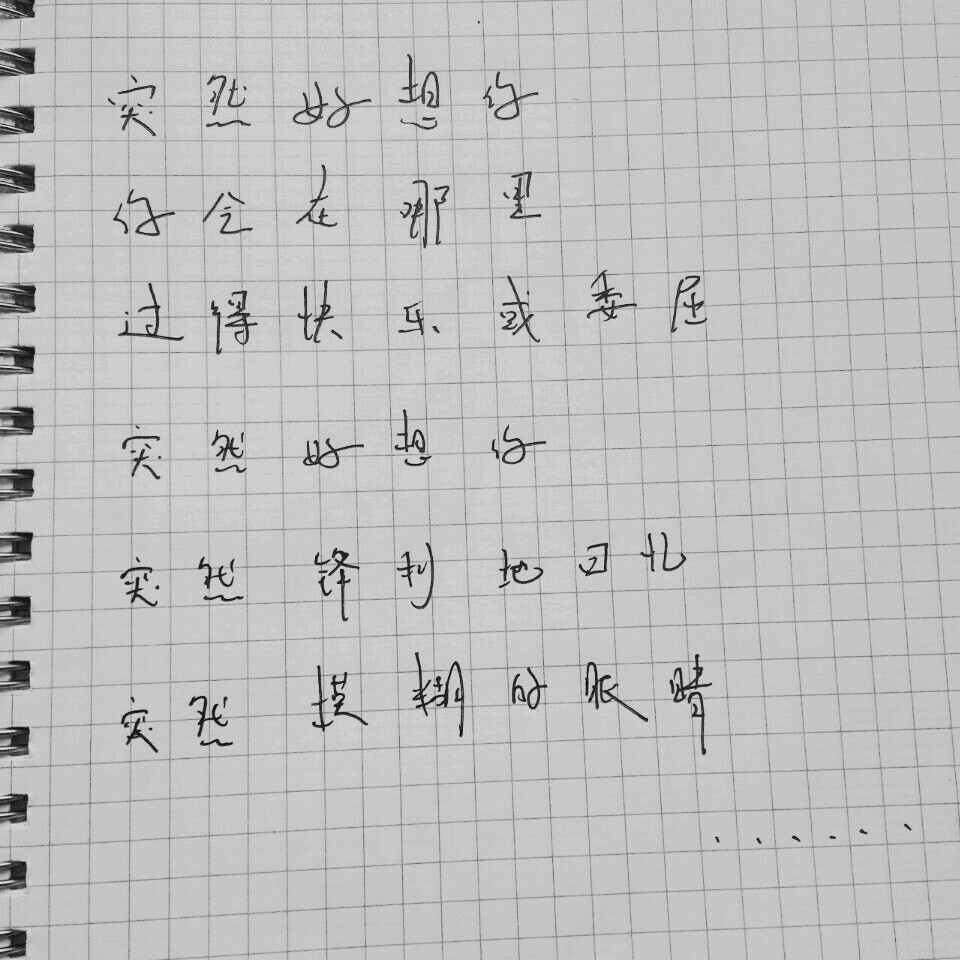 突然好想你
你会在哪里
过得快乐或委屈
突然好想你
突然锋利地回忆
突然模糊的眼睛
......